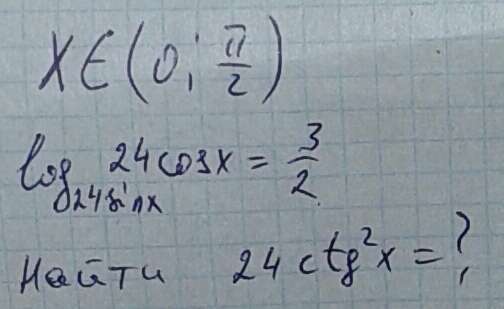 x∈(0; π/2)
log_{24sinx} 24cosx = 3/2
Найти 24ctg²x=?